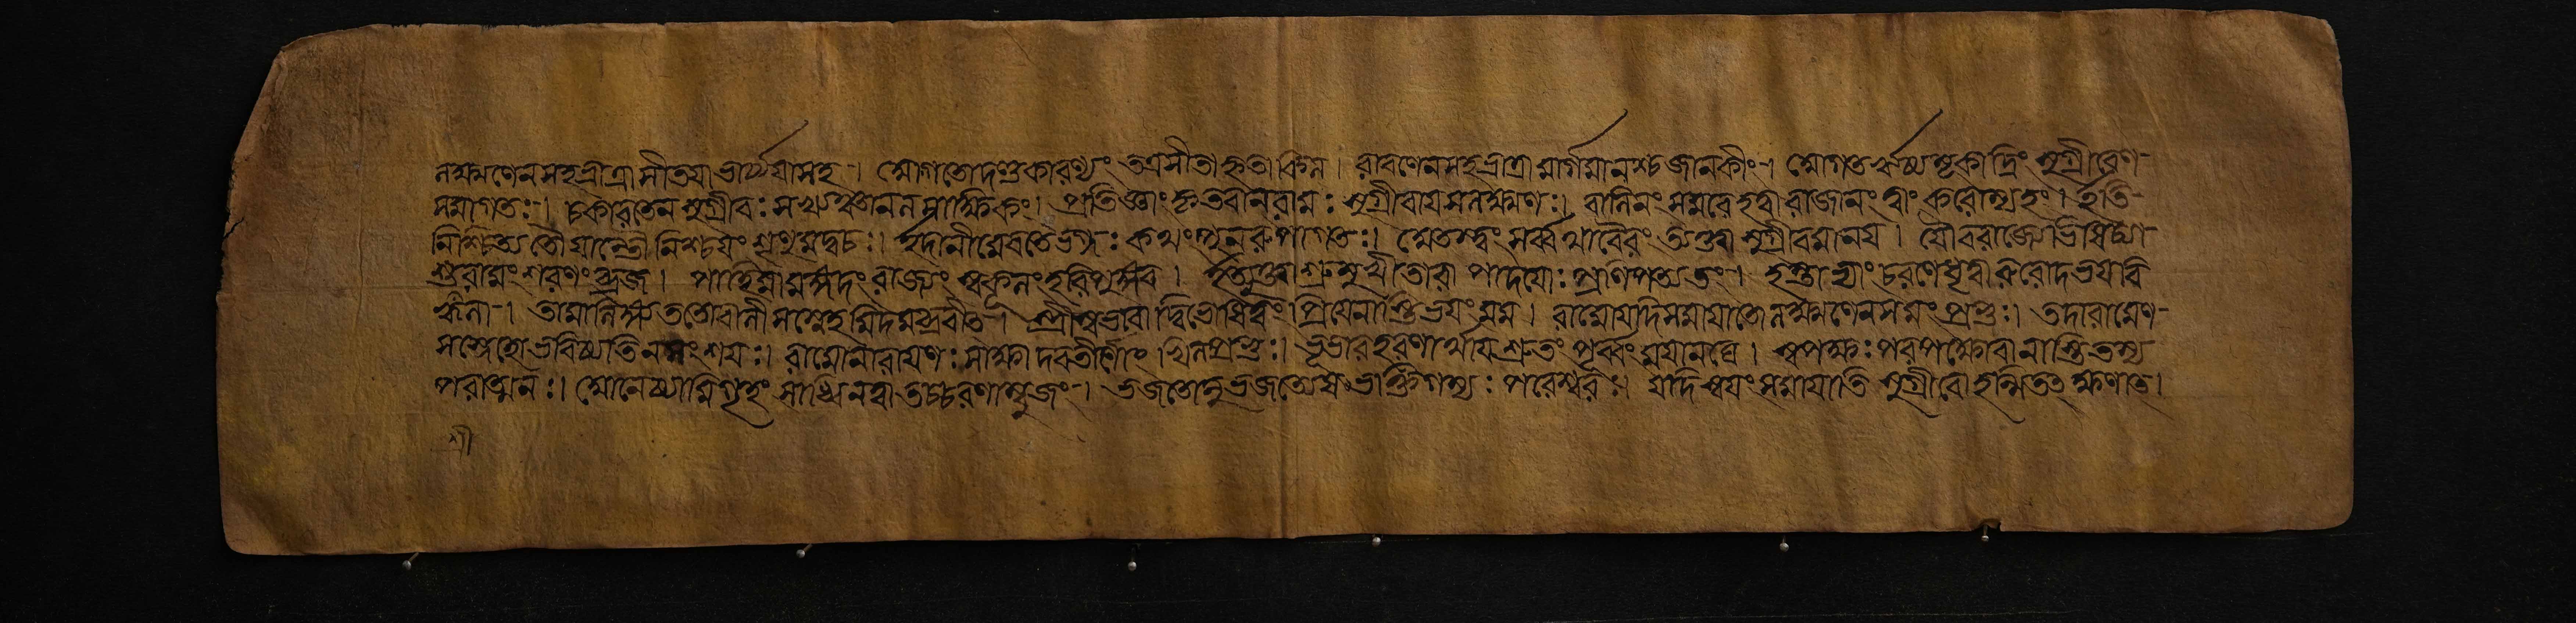 লক্ষ্মণেনসহভ্রাত্রাসীতয়াভার্য্যয়াসহ । সোগতোদণ্ডকারণ্যং তত্রসীতাহৃতাকিল । রাবণেনসহভ্রাত্রামার্গমানশ্চজানকীং । সোগতঋষ্যমূকাদ্রিং সুগ্রীবেণ
সমাগতঃ । চকারতেনসুগ্রীবঃসখ্যঞ্চানলসাক্ষিকং । প্রতিজ্ঞাংকৃতবানরামঃ সুগ্রীবায়সলক্ষ্মণঃ । বালিনংসমরেহত্বারাজানংত্বাংকরোম্যহং । ইতি
নিশ্চিত্যতৌয়াতৌনিশ্চয়ংশৃণুমদ্বচঃ । ইদানীমেবতেভগ্নঃকথংপুনরুপাগতঃ । সেতস্ত্বংসর্ব্বথাবৈরংত্যক্ত্বাসুগ্রীবমানয় । যৌবরাজ্যেভিষিচ্যা
শুরামংশরণংব্রজ । পাহিমামঙ্গদংরাজ্যংস্বকুলংহরিপুঙ্গব । ইত্যুক্ত্বাশ্রুমুখীতারা পাদয়োঃপ্রণিপত্যতং । হস্তাভ্যাংচরণেধৃত্বারুরোদভয়বি
হ্বলা । তামালিঙ্গ্যততোবালীসস্নেহমিদমব্রবীৎ । স্ত্রীস্বভাবাদ্বিভেষিত্বংপ্রিয়েনাস্তিভয়ংমম । রামোযদিসমায়াতোলক্ষ্মণেনসমংপ্রভুঃ । তদারামেণ
সস্নেহোভবিষ্যতিনসংশয়ঃ । রামোনারায়ণঃসাক্ষাদবতীর্ণোংখিলপ্রভুঃ । ভূভারহরণার্থায়শ্রুতংপূর্ব্বংময়ানঘে । স্বপক্ষঃপরপক্ষোবানাস্তিতস্য
পরাত্মনঃ । সোনেষ্যামিগৃহংসাধ্বিনত্বাতচ্চরণাম্বুজং । ভজতোনুভজত্যেষভক্তিগম্যঃপরেশ্বরঃ । যদিস্বয়ংসমায়াতিসুগ্রীবোহন্মিতংক্ষণাত্ ।
শ্রী